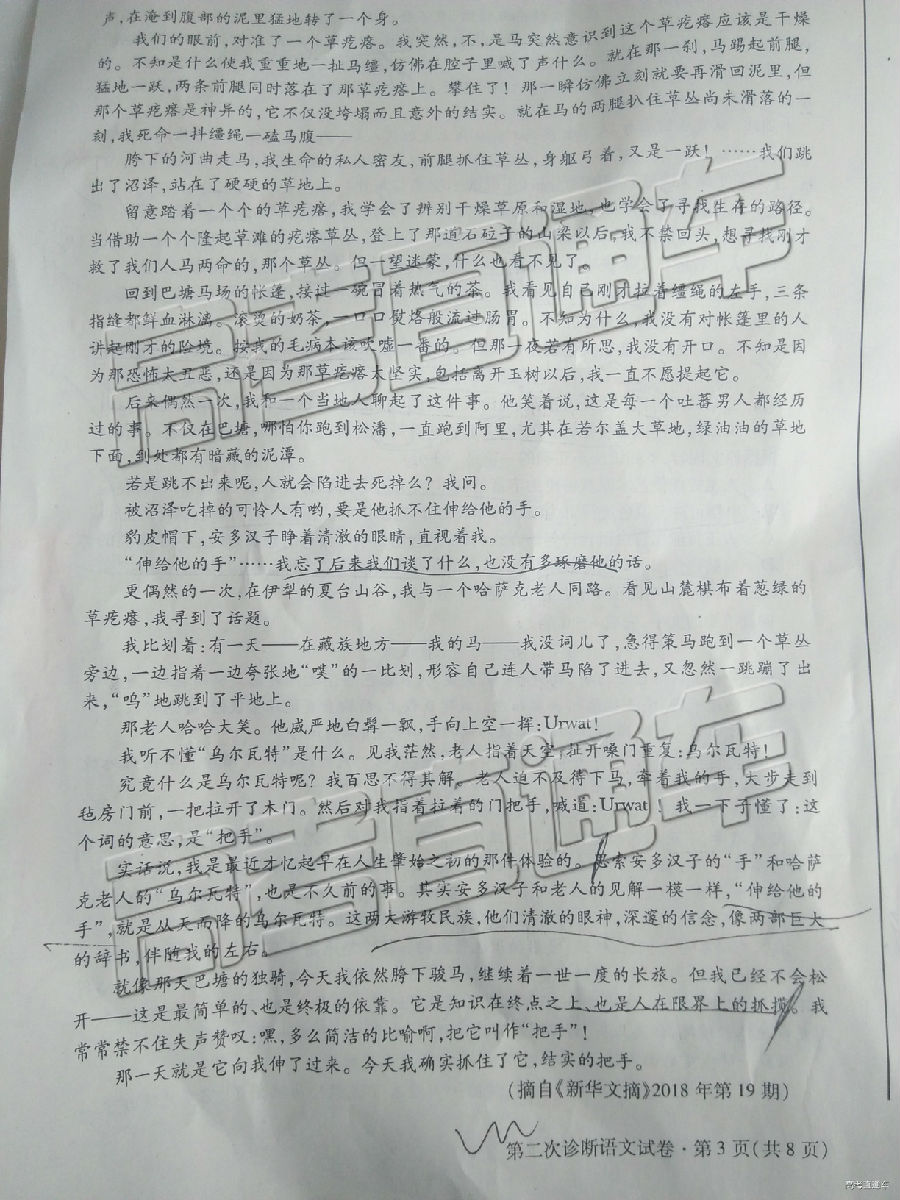 声,在淹到腹部的泥里猛地转了一个身。
我们的眼前,对准了一个草疙瘩。我突然,不,是马突然意识到这个草疙瘩应该是干燥
的。不知是什么使我重重地一扯马缰,仿佛在腔子里喊了声什么。就在那一刹,马踢起前腿,
猛地一跃,两条前腿同时落在了那草疙瘩上。攀住了!那一瞬仿佛立刻就要再滑回泥里,但
那个草疙瘩是神异的,它不仅没垮塌而且意外的结实。就在马的两腿扒住草丛尚未滑落的一
刻,我死命一抖缰绳一磕马腹——
胯下的河曲走马,我生命的私人密友,前腿抓住草丛,身躯弓着,又是一跃!……我们跳
出了沼泽,站在了硬硬的草地上。
留意踏着一个个的草疙瘩,我学会了辨别干燥草原和湿地,也学会了寻找生存的路径。
当借助一个个隆起草滩的疙瘩草丛,登上了那道石砬子的山梁以后,我不禁回头,想寻找刚才
救了我们人马两命的,那个草丛。但一望迷蒙,什么也看不见了。
回到巴塘马场的帐篷,接过一碗冒着热气的茶。我看见自己刚才拉着缰绳的左手,三条
指缝都鲜血淋漓。滚烫的奶茶,一口口熨烙般流过肠胃。不知为什么,我没有对帐篷里的人
讲起刚才的险境。按我的毛病本该吹嘘一番的。但那一夜若有所思,我没有开口。不知是因
为那恐怖太丑恶,还是因为那草疙瘩太坚实,包括离开玉树以后,我一直不愿提起它。
后来偶然一次,我和一个当地人聊起了这件事。他笑着说,这是每一个吐蕃男人都经历
过的事。不仅在巴塘,哪怕你跑到松潘,一直跑到阿里,尤其在若尔盖大草地,绿油油的草地
下面,到处都有暗藏的泥潭。
若是跳不出来呢,人就会陷进去死掉么?我问。
被沼泽吃掉的可怜人有哟,要是他抓不住伸给他的手。
豹皮帽下,安多汉子睁着清澈的眼睛,直视着我。
“伸给他的手”……我忘了后来我们谈了什么,也没有多琢磨他的话。
更偶然的一次,在伊犁的夏台山谷,我与一个哈萨克老人同路。看见山麓棋布着葱绿的
草疙瘩,我寻到了话题。
我比划着:有一天——在藏族地方——我的马——我没词儿了,急得策马跑到一个草丛
旁边,一边指着一边夸张地“噗”的一比划,形容自己连人带马陷了进去,又忽然一跳蹦了出
来,“呜”地跳到了平地上。
那老人哈哈大笑。他威严地白髯一飘,手向上空一挥:Urwat!
我听不懂“乌尔瓦特”是什么。见我茫然,老人指着天空,扯开嗓门重复:乌尔瓦特!
究竟什么是乌尔瓦特呢?我百思不得其解。老人迫不及待下马,牵着我的手,大步走到
毡房门前,一把拉开了木门。然后对我指着拉着的门把手,喊道:Urwat!我一下子懂了:这
个词的意思,是“把手”。
实话说,我是最近才忆起早在人生肇始之初的那件体验的。思索安多汉子的“手”和哈萨
克老人的“乌尔瓦特”,也是不久前的事。其实安多汉子和老人的见解一模一样,“伸给他的
手”,就是从天而降的乌尔瓦特。这两大游牧民族,他们清澈的眼神,深邃的信念,像两部巨大
的辞书,伴随我的左右。
就像那天巴塘的独骑,今天我依然胯下骏马,继续着一世一度的长旅。但我已经不会松
开——这是最简单的、也是终极的依靠。它是知识在终点之上、也是人在限界上的抓揽。我
常常禁不住失声赞叹:嘿,多么简洁的比喻啊,把它叫作“把手”!
那一天就是它向我伸了过来。今天我确实抓住了它,结实的把手。
(摘自《新华文摘》2018年第19期)
第二次诊断语文试卷·第3页(共8页)
高考直通车
高考直通车
高考直通车